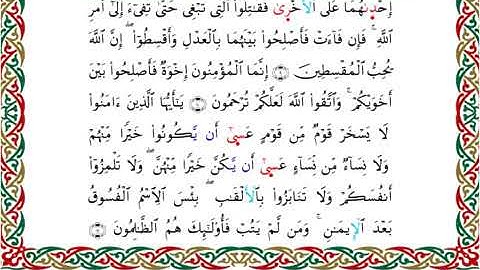 إِحْدَىٰهُمَا عَلَى ٱلْأُخْرَىٰ فَقَـٰتِلُوا۟ ٱلَّتِى تَبْغِى حَتَّىٰ تَفِىٓءَ إِلَىٰٓ أَمْرِ
ٱللَّهِ ۚ فَإِن فَآءَتْ فَأَصْلِحُوا۟ بَيْنَهُمَا بِٱلْعَدْلِ وَأَقْسِطُوٓا۟ ۖ إِنَّ ٱللَّهَ
يُحِبُّ ٱلْمُقْسِطِينَ ۝٩ إِنَّمَا ٱلْمُؤْمِنُونَ إِخْوَةٌ فَأَصْلِحُوا۟ بَيْنَ
أَخَوَيْكُمْ ۚ وَٱتَّقُوا۟ ٱللَّهَ لَعَلَّكُمْ تُرْحَمُونَ ۝١٠ يَـٰٓأَيُّهَا ٱلَّذِينَ ءَامَنُوا۟
لَا يَسْخَرْ قَوْمٌ مِّن قَوْمٍ عَسَىٰٓ أَن يَكُونُوا۟ خَيْرًا مِّنْهُمْ
وَلَا نِسَآءٌ مِّن نِّسَآءٍ عَسَىٰٓ أَن يَكُنَّ خَيْرًا مِّنْهُنَّ ۖ وَلَا تَلْمِزُوٓا۟
أَنفُسَكُمْ وَلَا تَنَابَزُوا۟ بِٱلْأَلْقَـٰبِ ۖ بِئْسَ ٱلِٱسْمُ ٱلْفُسُوقُ
بَعْدَ ٱلْإِيمَـٰنِ ۚ وَمَن لَّمْ يَتُبْ فَأُو۟لَـٰٓئِكَ هُمُ ٱلظَّـٰلِمُونَ ۝١١